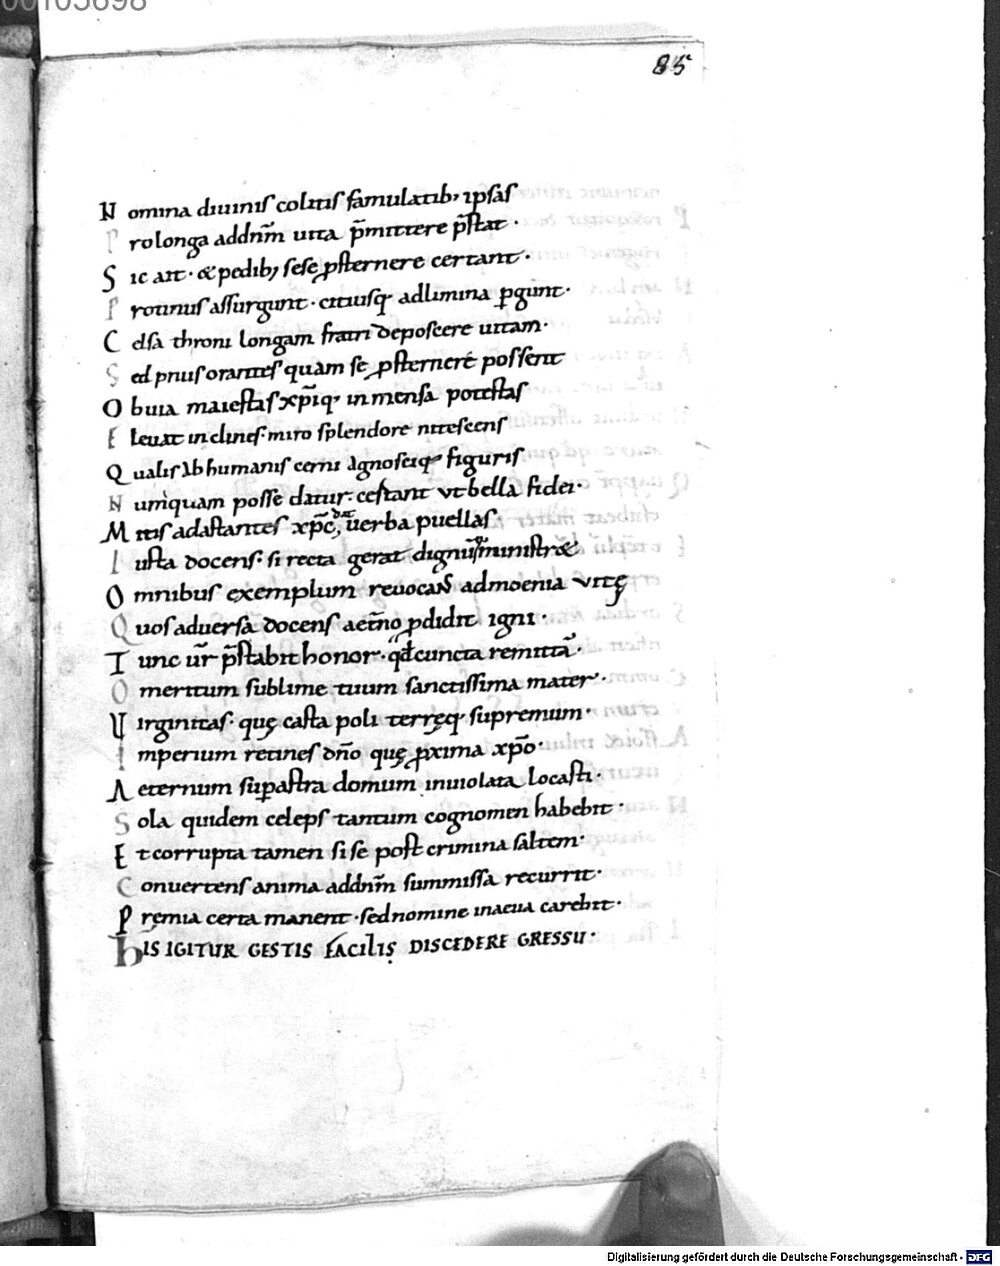 00103898
85
Nomina diuinis colitis famulatib; ipsas
Prolonga addnm̄ uita p̄mittere p̄stat·
Sic ait· & pedib; sese ꝓsternere certant·
Protinus assurgunt· citiusq; adlimina ꝑgunt·
Celsa throni longam fratri deposcere uitam·
Sed prius orantes quam se ꝓsternere possent
Obuia maiestas xp̄iq; inmensa potestas
Eleuat inclines· miro splendore nitescens
Qualis ab humanis cerni agnosciq; figuris
Numquam posse datur· cestant ut bella fidei·
Mitis adastantes xp̄c, dat uerba puellas
Iusta docens· si recta gerat dignusq; ministret
Omnibus exemplum reuocans admoenia uitę
Quos aduersa docens aet̄no ꝑdidit igni·
Tunc ur̄ p̄stabit honor· qd̄ cuncta remittā·
O meritum sublime tuum sanctissima mater·
Virginitas· quę casta poli terręq; supremum·
Imperium retines dn̄o quę ꝓxima xp̄o·
Aeternum suꝑ astra domum inuiolata locasti·
Sola quidem celeps tantum cognomen habebit·
Et corrupta tamen si se post crimina saltem·
Conuertens anima addnm̄ summissa recurrit·
Pręmia certa manent· sed nomine inaeua carebit·
HIS IGITUR GESTIS FACILIS DISCEDERE GRESSU·
Digitalisierung gefördert durch die Deutsche Forschungsgemeinschaft - DFG